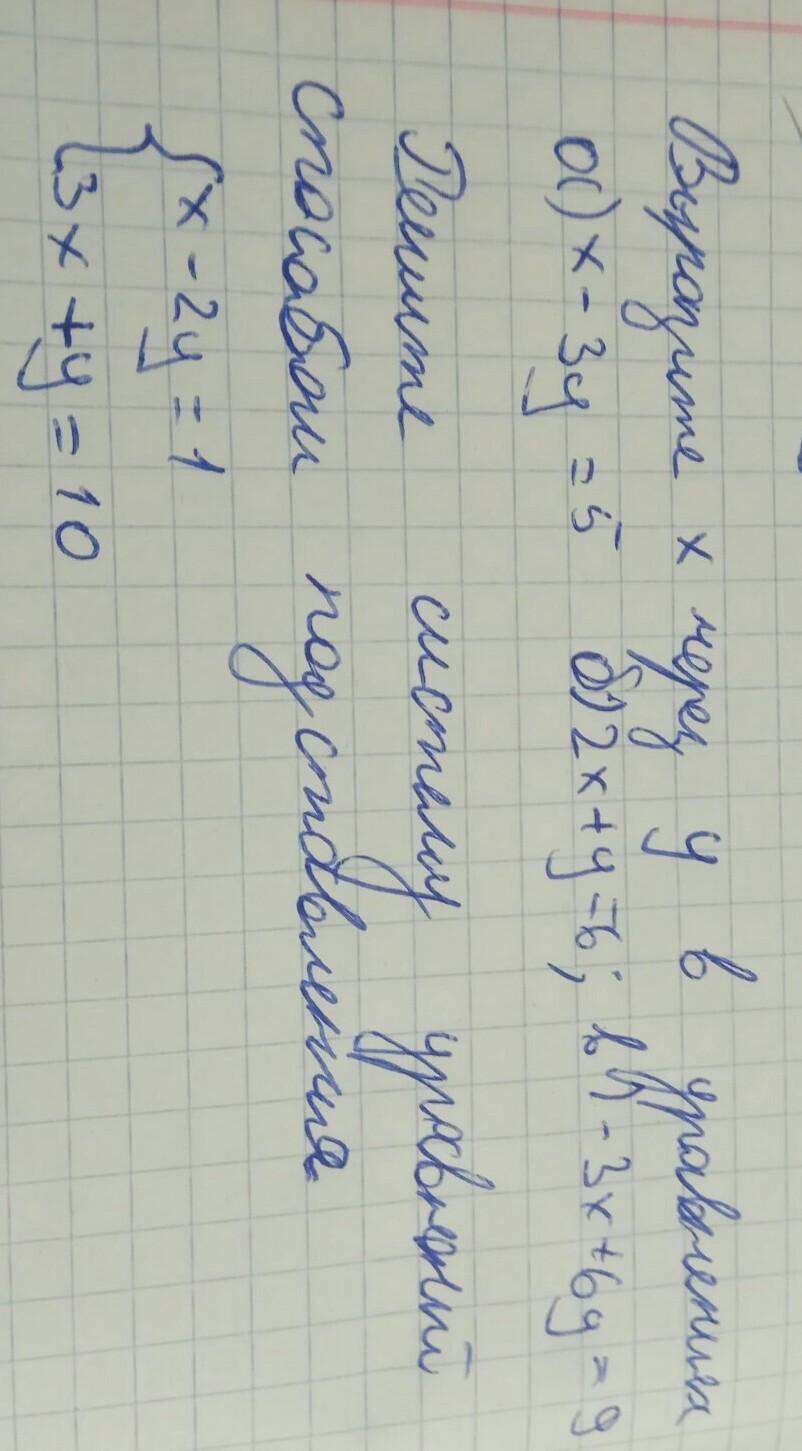 Выразите x через y в уравнениях
а) x - 3y = 5 б) 2x + y = 6; в) - 3x + 6y = 9
Решите систему уравнений
способом подставления
{ x - 2y = 1
3x + y = 10